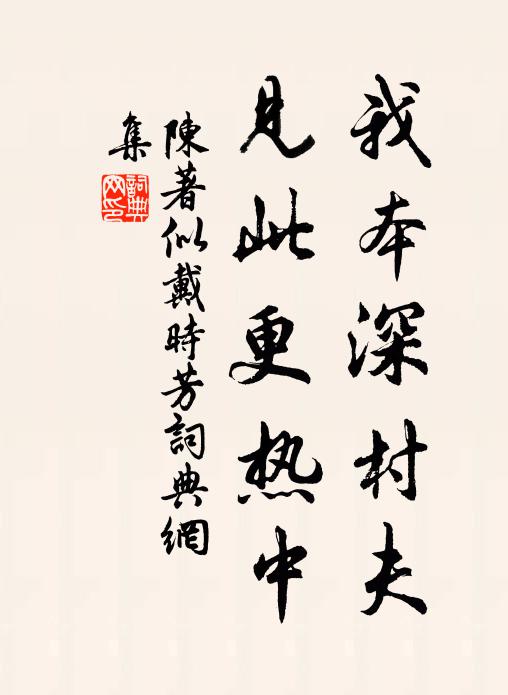 我本深村夫
見此更热中
陳著似戴時芳詞典網
集
詞典网印